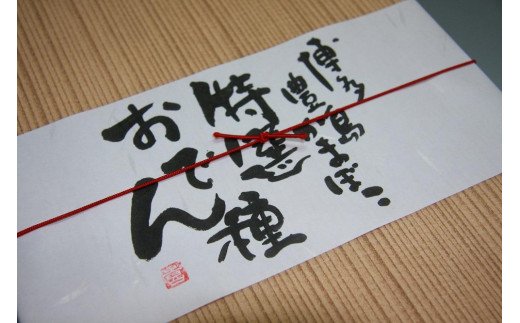 博多
豊島かまぼこ
特選
おでん種